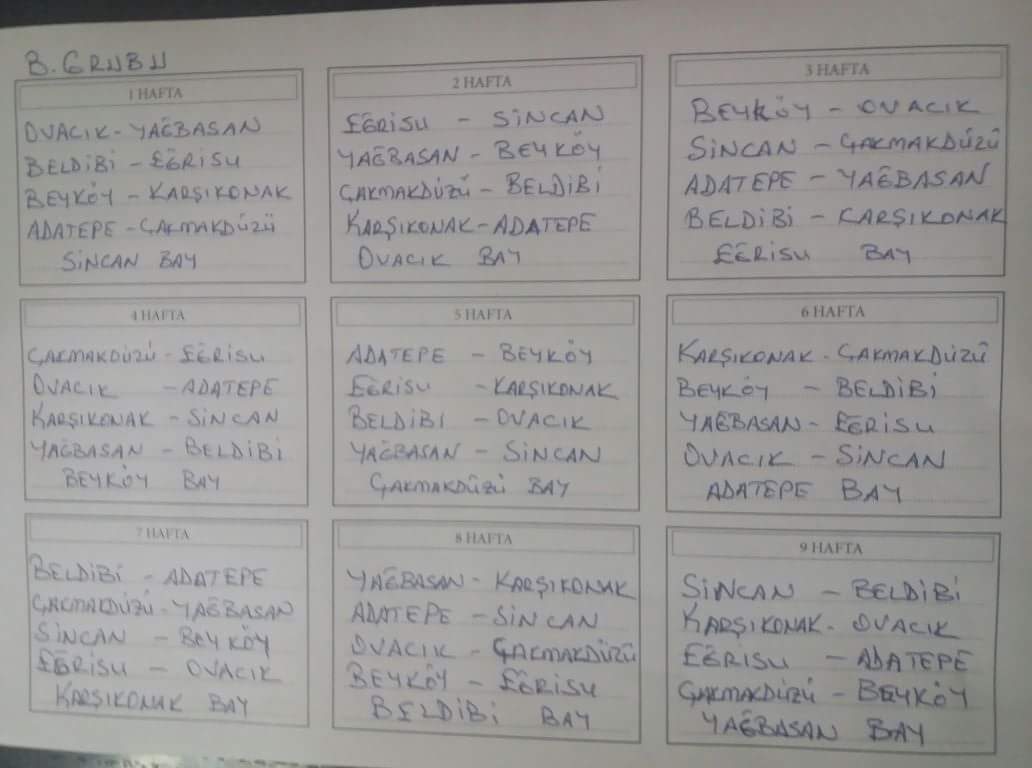 B. GRUBU
1 HAFTA
OVACIK - YAĞBASAN
BELDİBİ - EĞRİSU
BEYKÖY - KARŞIKONAK
ADATEPE - ÇAKMAKDÜZÜ
SİNCAN BAY
2 HAFTA
EĞRİSU - SİNCAN
YAĞBASAN - BEYKÖY
ÇAKMAKDÜZÜ - BELDİBİ
KARŞIKONAK - ADATEPE
OVACIK BAY
3 HAFTA
BEYKÖY - OVACIK
SİNCAN - ÇAKMAKDÜZÜ
ADATEPE - YAĞBASAN
BELDİBİ - KARŞIKONAK
EĞRİSU BAY
4 HAFTA
ÇAKMAKDÜZÜ - EĞRİSU
OVACIK - ADATEPE
KARŞIKONAK - SİNCAN
YAĞBASAN - BELDİBİ
BEYKÖY BAY
5 HAFTA
ADATEPE - BEYKÖY
EĞRİSU - KARŞIKONAK
BELDİBİ - OVACIK
YAĞBASAN - SİNCAN
ÇAKMAKDÜZÜ BAY
6 HAFTA
KARŞIKONAK - ÇAKMAKDÜZÜ
BEYKÖY - BELDİBİ
YAĞBASAN - EĞRİSU
OVACIK - SİNCAN
ADATEPE BAY
7 HAFTA
BELDİBİ - ADATEPE
ÇAKMAKDÜZÜ - YAĞBASAN
SİNCAN - BEYKÖY
EĞRİSU - OVACIK
KARŞIKONAK BAY
8 HAFTA
YAĞBASAN - KARŞIKONAK
ADATEPE - SİNCAN
OVACIK - ÇAKMAKDÜZÜ
BEYKÖY - EĞRİSU
BELDİBİ BAY
9 HAFTA
SİNCAN - BELDİBİ
KARŞIKONAK - OVACIK
EĞRİSU - ADATEPE
ÇAKMAKDÜZÜ - BEYKÖY
YAĞBASAN BAY